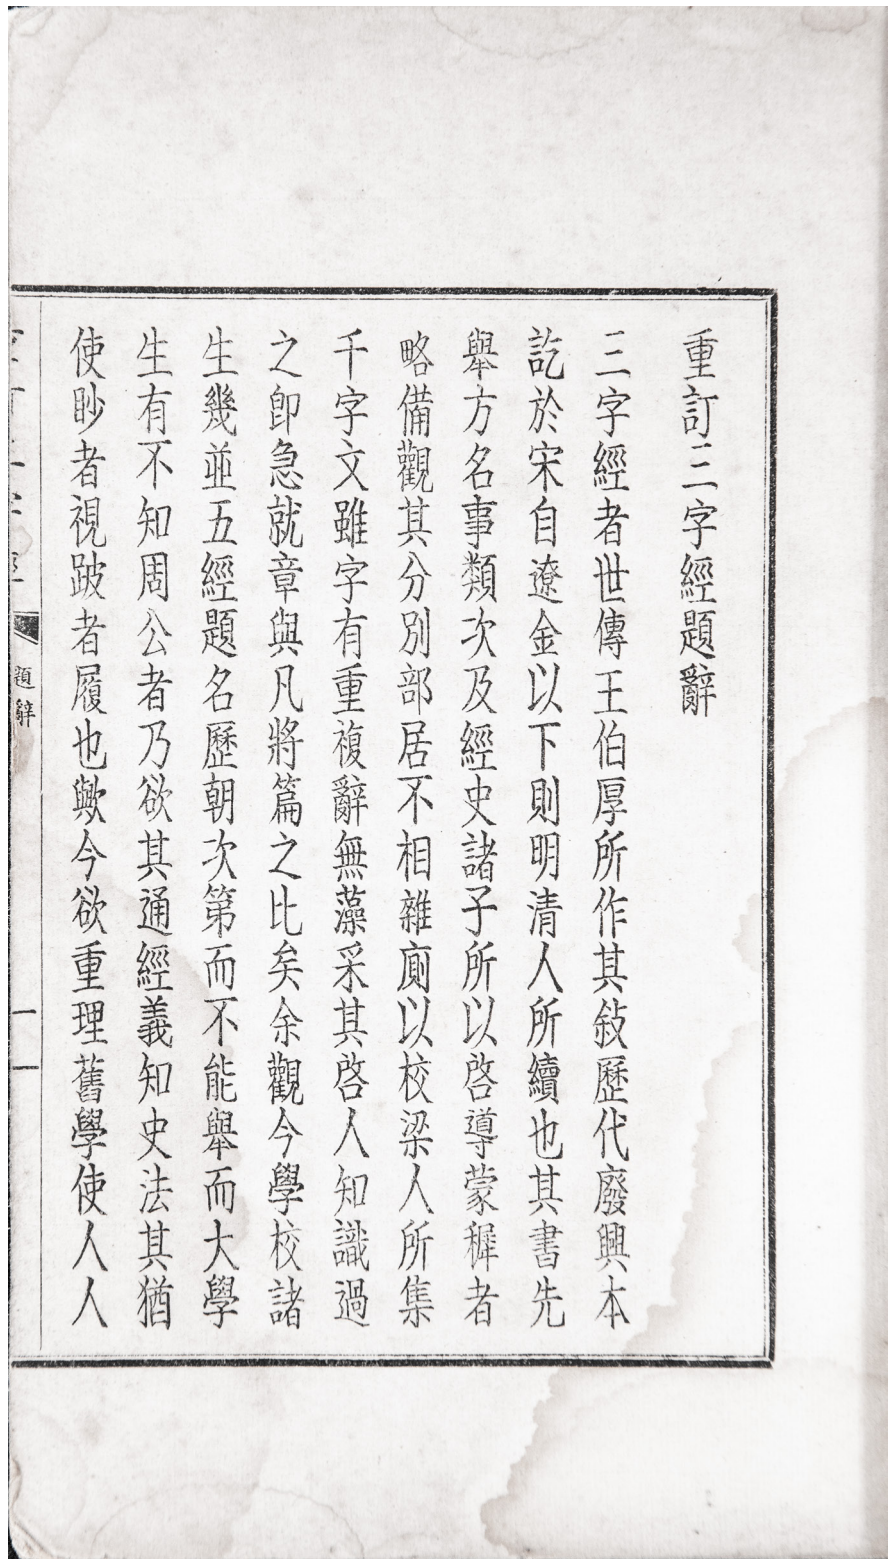 重訂三字經題辭
三字經者世傳王伯厚所作其敍歷代廢興本
訖於宋自遼金以下則明清人所續也其書先
舉方名事類次及經史諸子所以啓導蒙穉者
略備觀其分別部居不相雜廁以校梁人所集
千字文雖字有重複辭無藻采其啓人知識過
之卽急就章與凡將篇之比矣余觀今學校諸
生幾並五經題名歷朝次第而不能舉而大學
生有不知周公者乃欲其通經義知史法其猶
使眇者視跛者履也歟今欲重理舊學使人人
題辭
一